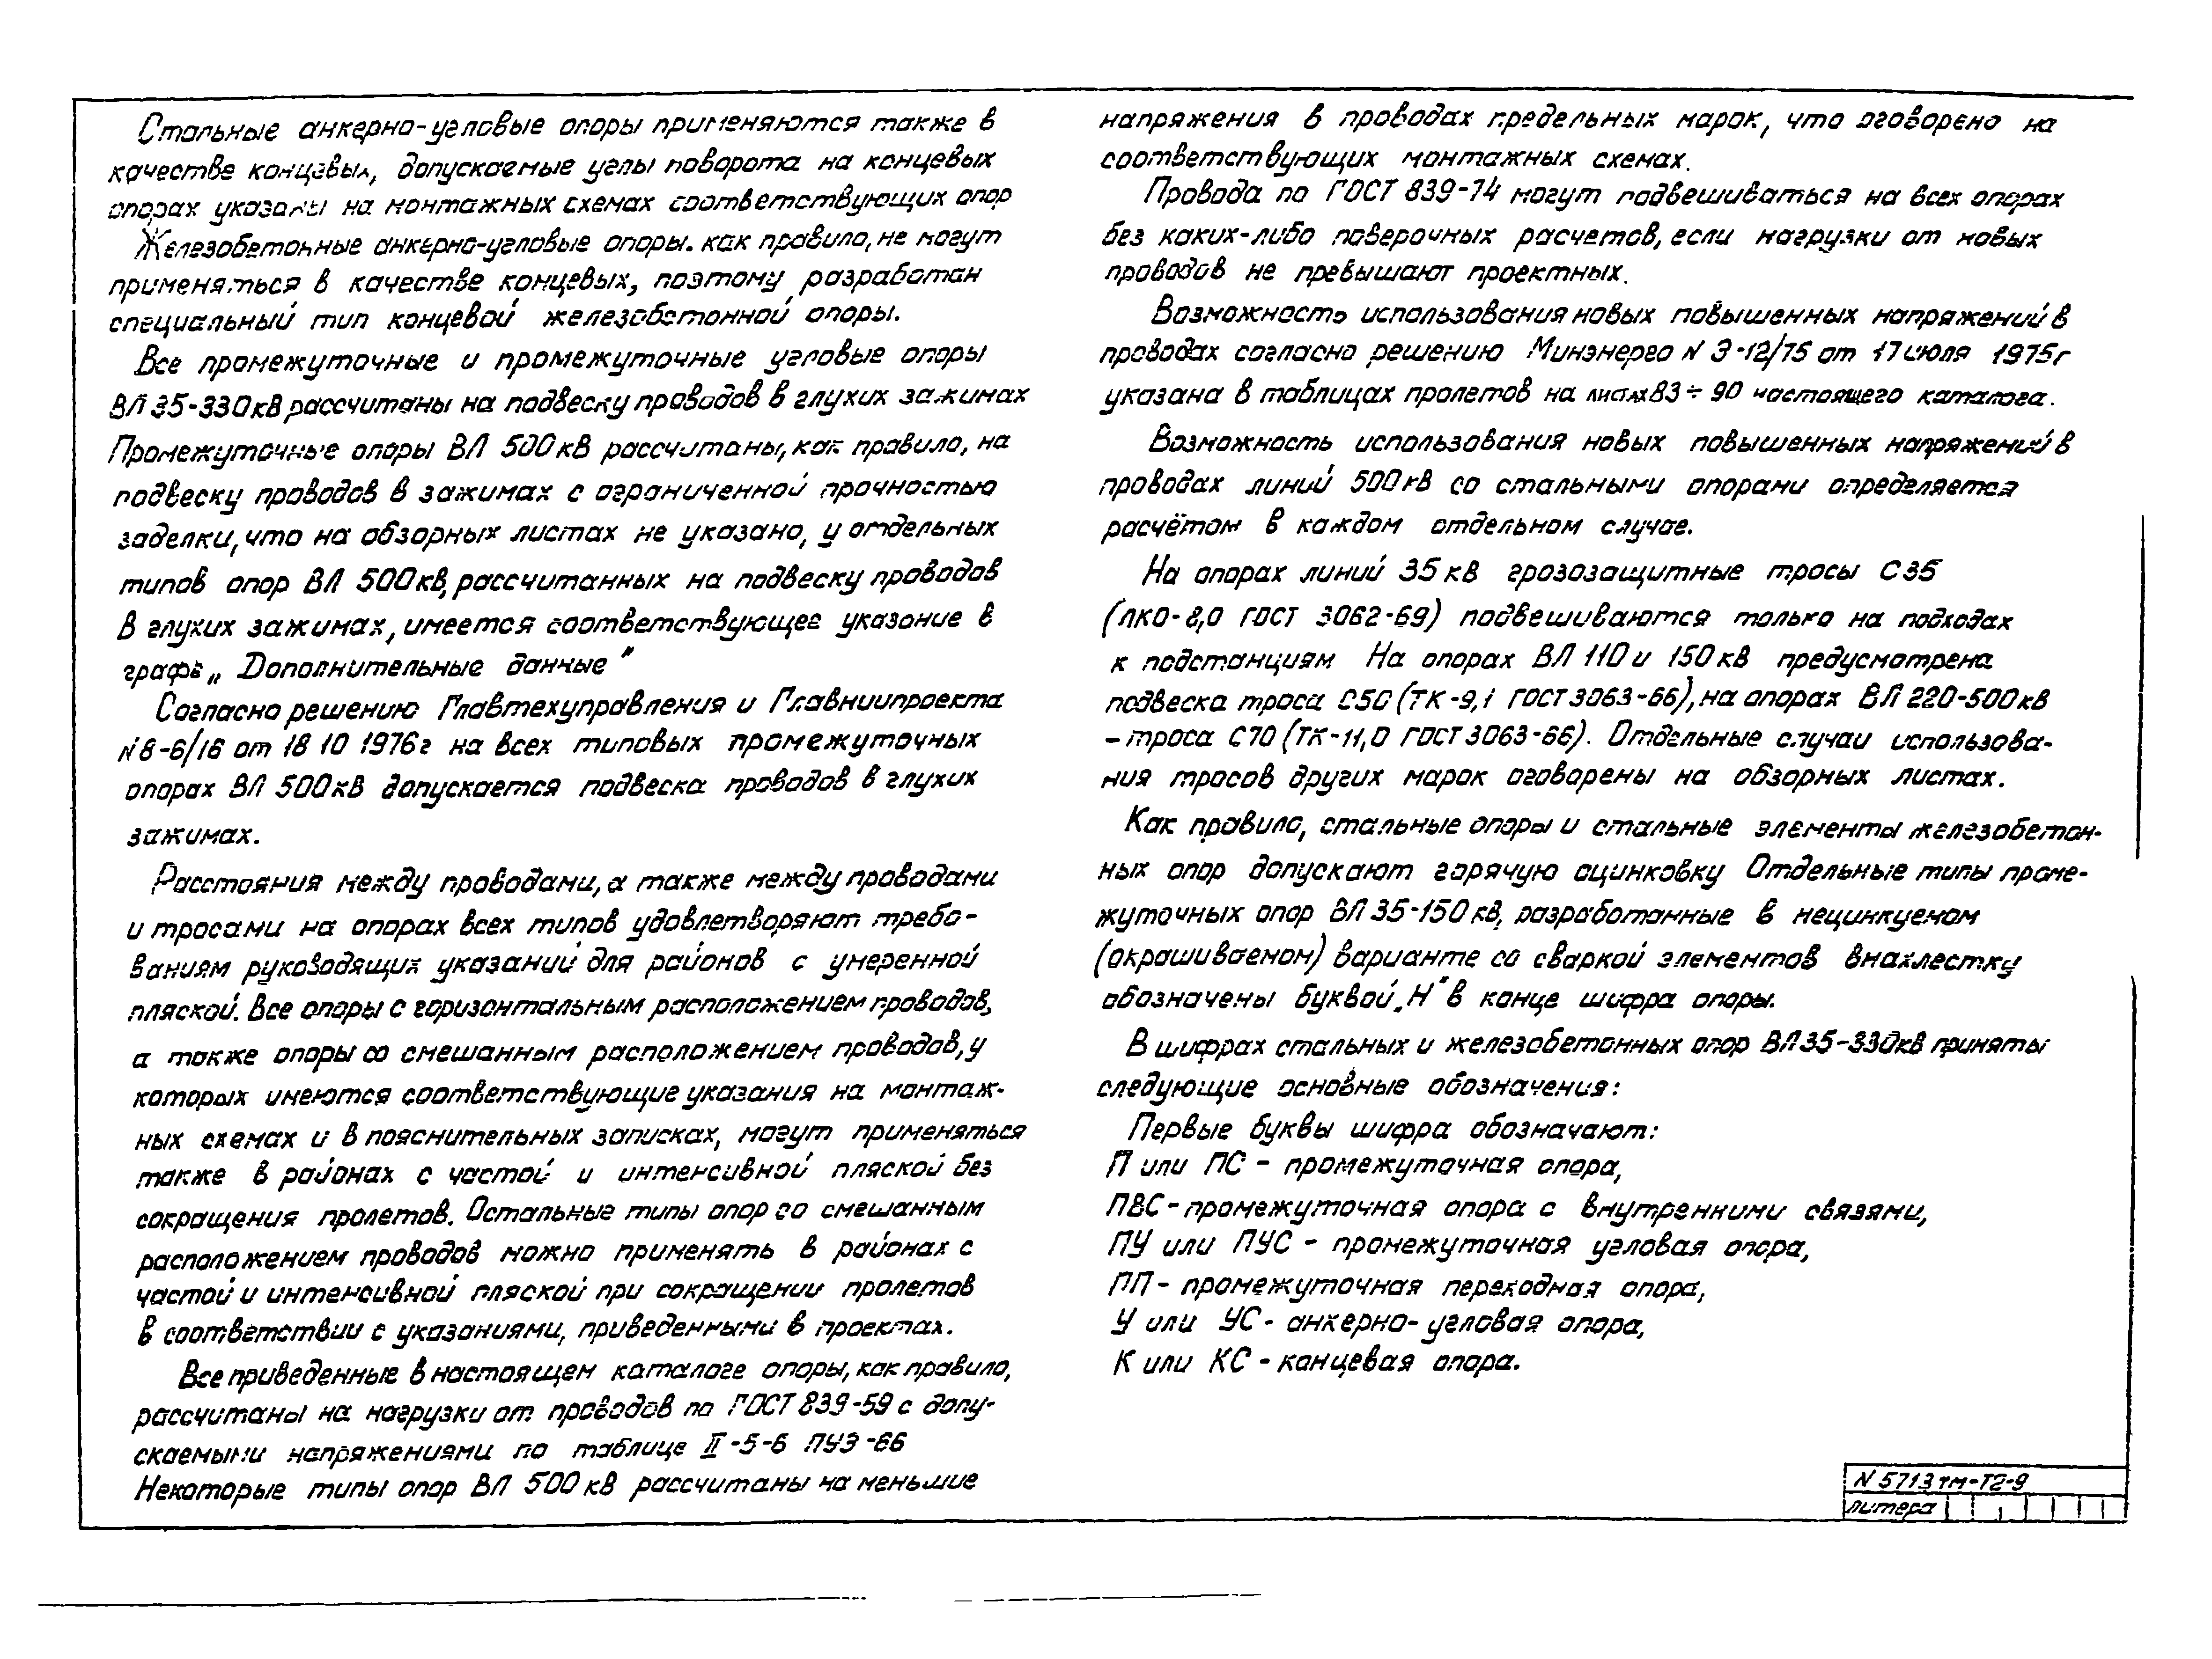 Стальные анкерно-угловые опоры применяются также в
качестве концевых, допускаемые углы поворота на концевых
опорах указаны на монтажных схемах соответствующих опор
Железобетонные анкерно-угловые опоры. как правило, не могут
применяться в качестве концевых, поэтому разработан
специальный тип концевой железобетонной опоры.
Все промежуточные и промежуточные угловые опоры
ВЛ 35-330кВ рассчитаны на подвеску проводов в глухих зажимах
Промежуточные опоры ВЛ 500кВ рассчитаны, как правило, на
подвеску проводов в зажимах с ограниченной прочностью
заделки, что на обзорных листах не указано, у отдельных
типов опор ВЛ 500кВ, рассчитанных на подвеску проводов
в глухих зажимах, имеется соответствующее указание в
графе „Дополнительные данные"
Согласно решению Главтехуправления и Главниипроекта
N8-6/16 от 18 10 1976г на всех типовых промежуточных
опорах ВЛ 500кВ допускается подвеска проводов в глухих
зажимах.
Расстояния между проводами, а также между проводами
и тросами на опорах всех типов удовлетворяют требо-
ваниям руководящих указаний для районов с умеренной
пляской. Все опоры с горизонтальным расположением проводов,
а также опоры со смешанным расположением проводов, у
которых имеются соответствующие указания на монтаж-
ных схемах и в пояснительных записках, могут применяться
также в районах с частой и интенсивной пляской без
сокращения пролетов. Остальные типы опор со смешанным
расположением проводов можно применять в районах с
частой и интенсивной пляской при сокращении пролетов
в соответствии с указаниями, приведенными в проектах.
Все приведенные в настоящем каталоге опоры, как правило,
рассчитаны на нагрузки от проводов по ГОСТ 839-59 с допу-
скаемыми напряжениями по таблице II-5-6 ПУЭ-66
Некоторые типы опор ВЛ 500 кВ рассчитаны на меньшие
напряжения в проводах предельных марок, что оговорено на
соответствующих монтажных схемах.
Провода по ГОСТ 839-74 могут подвешиваться на всех опорах
без каких-либо поверочных расчетов, если нагрузки от новых
проводов не превышают проектных.
Возможность использования новых повышенных напряжений в
проводах согласно решению Минэнерго N Э-12/75 от 17 июля 1975г
указана в таблицах пролетов на листах 83÷90 настоящего каталога.
Возможность использования новых повышенных напряжений в
проводах линий 500кВ со стальными опорами определяется
расчётом в каждом отдельном случае.
На опорах линий 35кВ грозозащитные тросы С35
(ЛКО-8,0 ГОСТ 3062-69) подвешиваются только на подходах
к подстанциям На опорах ВЛ 110 и 150кВ предусмотрена
подвеска троса С50 (ТК-9,1 ГОСТ 3063-66), на опорах ВЛ 220-500кВ
-троса С70 (ТК-11,0 ГОСТ 3063-66). Отдельные случаи использова-
ния тросов других марок оговорены на обзорных листах.
Как правило, стальные опоры и стальные элементы железобетон-
ных опор допускают горячую оцинковку Отдельные типы проме-
жуточных опор ВЛ 35-150кВ, разработанные в нецинкуемом
(окрашиваемом) варианте со сваркой элементов внахлестку
обозначены буквой „Н" в конце шифра опоры.
В шифрах стальных и железобетонных опор ВЛ 35-330кВ приняты
следующие основные обозначения:
Первые буквы шифра обозначают:
П или ПС - промежуточная опора,
ПВС - промежуточная опора с внутренними связями,
ПУ или ПУС - промежуточная угловая опора,
ПП - промежуточная переходная опора,
У или УС - анкерно-угловая опора,
К или КС - концевая опора.
N 5713тм-Т2-9
литера